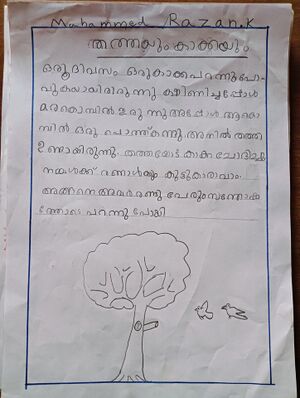 Mohammed Razan.k
തത്തയും കാക്കയും
ഒരു ദിവസം ഒരു കാക്ക പറന്നു പോ
വുകയായിരുന്നു ക്ഷീണിച്ചപ്പോൾ
മരകൊമ്പിൽ ഇരുന്നു അപ്പോൾ ആ കൊ
മ്പിൽ ഒരു പൊത്ത് കണ്ടു അതിൽ തത്ത
ഉണ്ടായിരുന്നു. തത്തയോട് കാക്ക ചോദിച്ചു
നമ്മൾക്ക് രണ്ടാൾക്കും കൂട്ടുകാരാവാം.
അങ്ങനെ അവർ രണ്ടു പേരും സന്തോഷ
ത്തോടെ പറന്നു പോയി